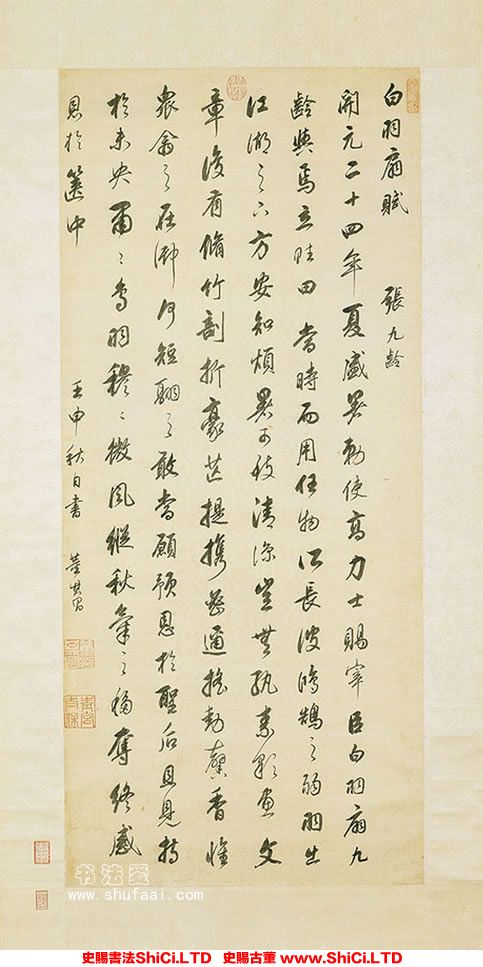 白羽扇賦 張九齡
開元二十四年夏盛暑勅使高力士賜宰臣白羽扇九
齡與焉立賦曰當時而用任物所長彼鴻鵠之弱羽出
江湖之下方安知煩暑可致清涼豈無紈素彩畫文
章復有脩竹剖析豪芒提攜密邇搖動馨香惟
眾禽之在御何短翮之敢當願預恩於聖后且見持
於未央肅肅鳥羽穆穆微風縱秋氣之移奪終感
恩於篋中
壬申秋日書 董其昌
书法至
www.shufaai.com
史賜書法ShiCi.LTD 史賜古董 www.ShiCi.LTD